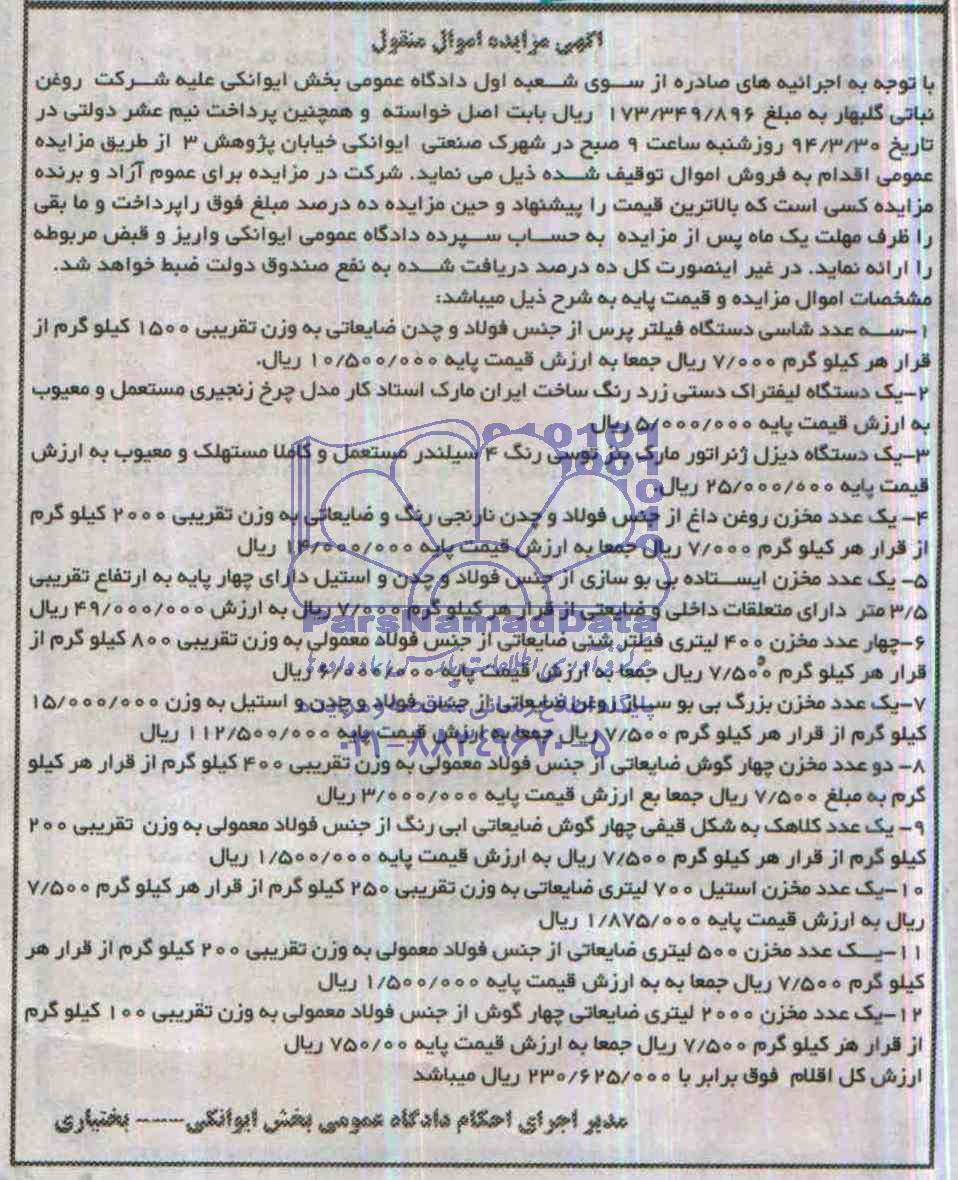 آگهی مزایده اموال منقول
با توجه به اجرائیه های صادره از سوی شعبه اول دادگاه عمومی بخش ایوانکی علیه شرکت روغن
نباتی گلبهار به مبلغ ۱۷۳/۳۴۹/۸۹۶ ریال بابت اصل خواسته و همچنین پرداخت نیم عشر دولتی در
تاریخ ۹۴/۳/۳۰ روزشنبه ساعت ۹ صبح در شهرک صنعتی ایوانکی خیابان پژوهش ۳ از طریق مزایده
عمومی اقدام به فروش اموال توقیف شده ذیل می نماید. شرکت در مزایده برای عموم آزاد و برنده
مزایده کسی است که بالاترین قیمت را پیشنهاد و حین مزایده ده درصد مبلغ فوق راپرداخت و ما بقی
را ظرف مهلت یک ماه پس از مزایده به حساب سپرده دادگاه عمومی ایوانکی واریز و قبض مربوطه
را ارائه نماید. در غیر اینصورت کل ده درصد دریافت شده به نفع صندوق دولت ضبط خواهد شد.
مشخصات اموال مزایده و قیمت پایه به شرح ذیل میباشد:
۱-سه عدد شاسی دستگاه فیلتر پرس از جنس فولاد و چدن ضایعاتی به وزن تقریبی ۱۵۰۰ کیلو گرم از
قرار هر کیلو گرم ۷/۰۰۰ ریال جمعا به ارزش قیمت پایه ۱۰/۵۰۰/۰۰۰ ریال.
۲-یک دستگاه لیفتراک دستی زرد رنگ ساخت ایران مارک استاد کار مدل چرخ زنجیری مستعمل و معیوب
به ارزش قیمت پایه ۵/۰۰۰/۰۰۰ ریال
۳-یک دستگاه دیزل ژنراتور مارک بنز توسی رنگ ۴ سیلندر مستعمل و کاملا مستهلک و معیوب به ارزش
قیمت پایه ۲۵/۰۰۰/۰۰۰ ریال.
۴- یک عدد مخزن روغن داغ از جنس فولاد و چدن نارنجی رنگ و ضایعاتی به وزن تقریبی ۲۰۰۰ کیلو گرم
از قرار هر کیلو گرم ۷/۰۰۰ ریال جمعا به ارزش قیمت پایه ۱۴/۰۰۰/۰۰۰ ریال
۵- یک عدد مخزن ایستاده بی بو سازی از جنس فولاد و چدن و استیل دارای چهار پایه به ارتفاع تقریبی
۳/۵ متر دارای متعلقات داخلی و ضایعتی از قرار هر کیلو گرم ۷/۰۰۰ ریال به ارزش ۴۹/۰۰۰/۰۰۰ ریال
۶-چهار عدد مخزن ۴۰۰ لیتری فیلتر شنی ضایعاتی از جنس فولاد معمولی به وزن تقریبی ۸۰۰ کیلو گرم از
قرار هر کیلو گرم ۷/۵۰۰ ریال جمعا به ارزش قیمت پایه ۶/۰۰۰/۰۰۰ ریال
۷-یک عدد مخزن بزرگ بی بو ساز روغن ضایعاتی از جنس فولاد و چدن و استیل به وزن ۱۵/۰۰۰/۰۰۰
کیلو گرم از قرار هر کیلو گرم ۷/۵۰۰ ریال جمعا به ارزش قیمت پایه ۱۱۲/۵۰۰/۰۰۰ ریال
۸- دو عدد مخزن چهار گوش ضایعاتی از جنس فولاد معمولی به وزن تقریبی ۴۰۰ کیلو گرم از قرار هر کیلو
گرم به مبلغ ۷/۵۰۰ ریال جمعا بع ارزش قیمت پایه ۳/۰۰۰/۰۰۰ ریال
۹- یک عدد کلاهک به شکل قیفی چهار گوش ضایعاتی ابی رنگ از جنس فولاد معمولی به وزن تقریبی ۲۰۰
کیلو گرم از قرار هر کیلو گرم ۷/۵۰۰ ریال به ارزش قیمت پایه ۱/۵۰۰/۰۰۰ ریال
۱۰-یک عدد مخزن استیل ۷۰۰ لیتری ضایعاتی به وزن تقریبی ۲۵۰ کیلو گرم از قرار هر کیلو گرم ۷/۵۰۰
ریال به ارزش قیمت پایه ۱/۸۷۵/۰۰۰ ریال
۱۱-یک عدد مخزن ۵۰۰ لیتری ضایعاتی از جنس فولاد معمولی به وزن تقریبی ۲۰۰ کیلو گرم از قرار هر
کیلو گرم ۷/۵۰۰ ریال جمعا به به ارزش قیمت پایه ۱/۵۰۰/۰۰۰ ریال
۱۲-یک عدد مخزن ۲۰۰۰ لیتری ضایعاتی چهار گوش از جنس فولاد معمولی به وزن تقریبی ۱۰۰ کیلو گرم
از قرار هر کیلو گرم ۷/۵۰۰ ریال جمعا به ارزش قیمت پایه ۷۵۰/۰۰ ریال
ارزش کل اقلام فوق برابر با ۲۳۰/۶۲۵/۰۰۰ ریال میباشد
مدیر اجرای احکام دادگاه عمومی بخش ایوانکی----- بختیاری
ParsNamadData
۰۲۱-۸۸۳۴۹۶۷۰-۵